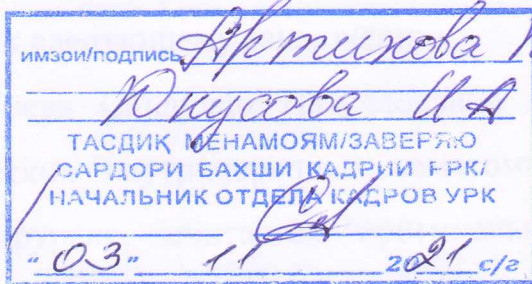 имзои/подпись Артикова
Юнусова И А
ТАСДИҚ МЕНАМОЯМ/ЗАВЕРЯЮ
САРДОРИ БАХШИ КАДРИИ РРК/
НАЧАЛЬНИК ОТДЕЛА КАДРОВ УРК
"03" 11 2021 с/г